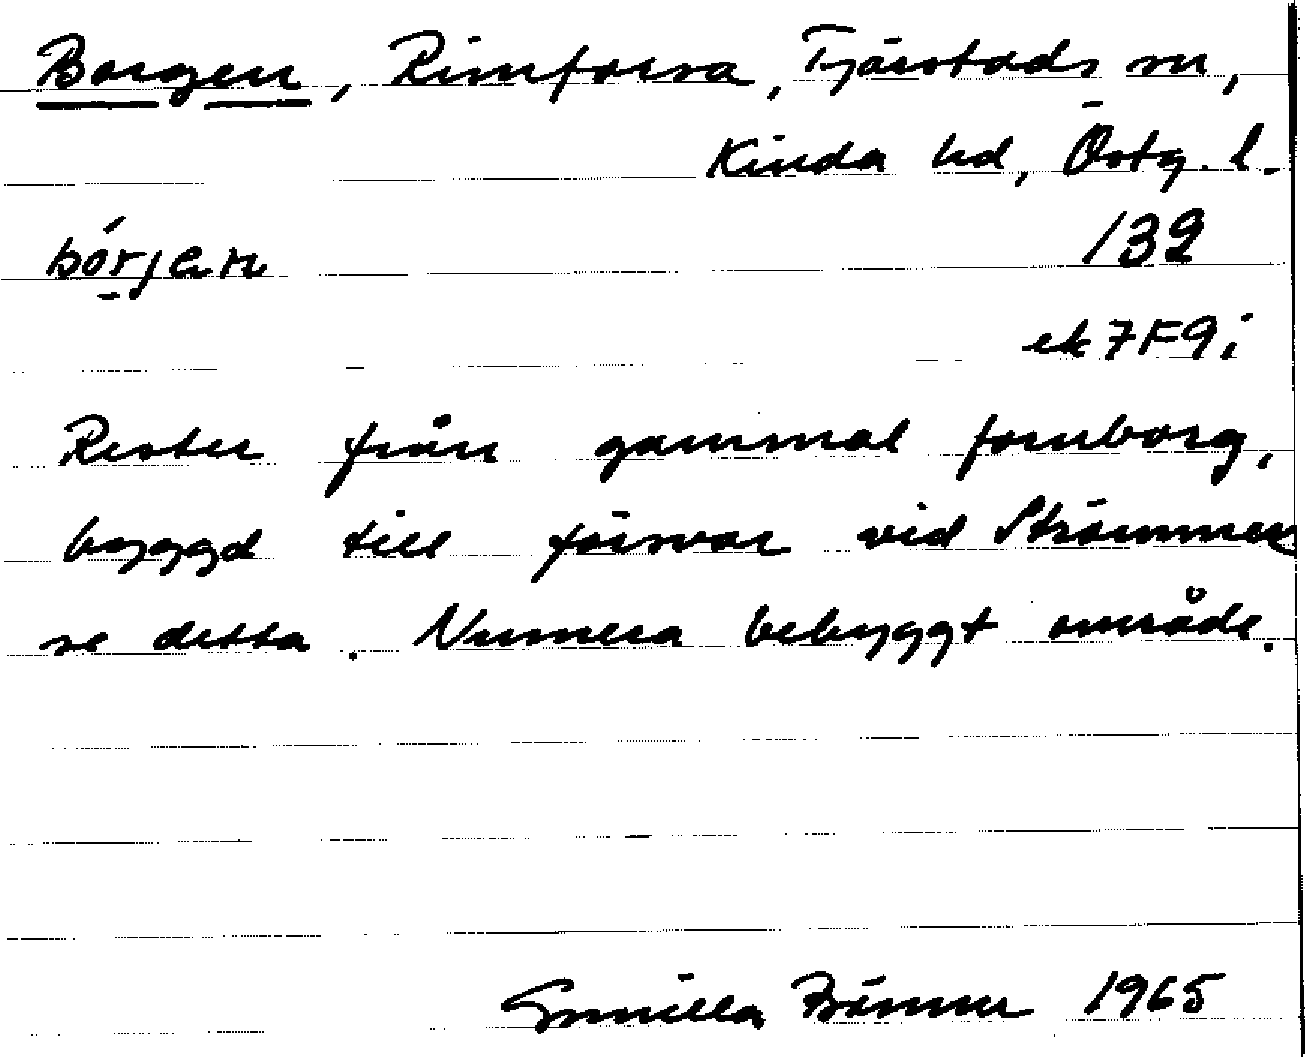 Borgen, Rimforsa, Tjärstads sn,
Kinda hd, Östg. l.
bór̠jen
132
ek 7F9i
Rester från gammal fornborg,
byggd till försvar vid Strömmen
se detta. Numera bebyggt område.
Gunilla 1965